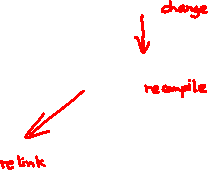 change
recompile
relink